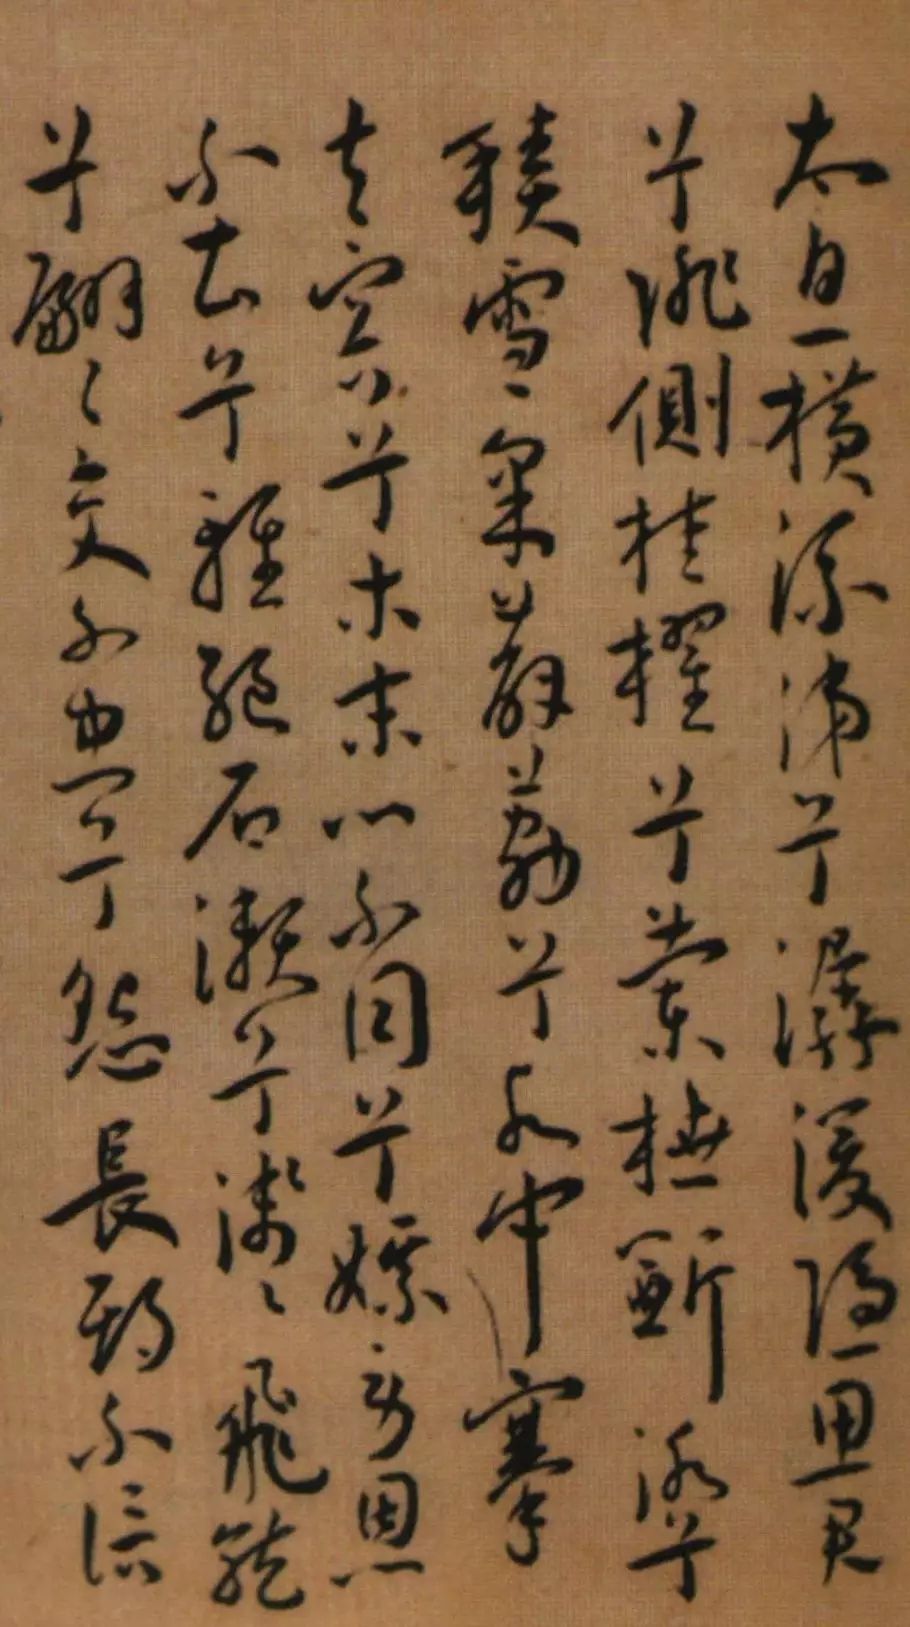 太息橫流涕兮潺湲隱思君
兮陫側桂櫂兮蘭枻斲冰兮
積雪采薜荔兮水中搴
芙蓉兮木末心不同兮媒勞恩
不甚兮輕絕石瀨兮淺〻飛龍
兮翩〻交不忠兮怨長期不信